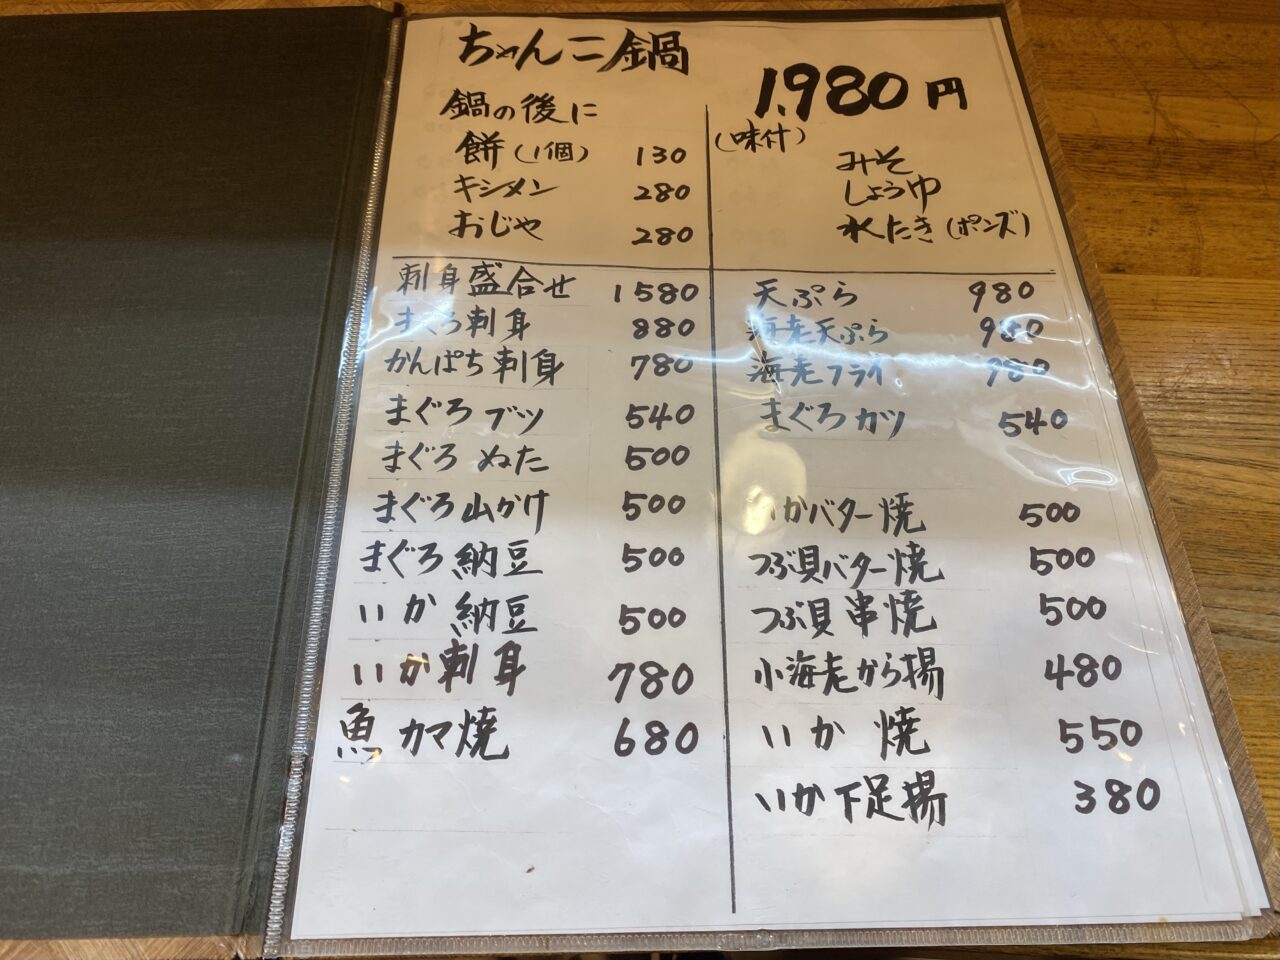 ちゃんこ鍋
1,980円
鍋の後に
餅(1個) 130
キシメン 280
おじや 280
(味付)
みそ
しょうゆ
水たき(ポンズ)
刺身盛合せ 1580
まぐろ刺身 880
かんぱち刺身 780
まぐろブツ 540
まぐろぬた 500
まぐろ山かけ 500
まぐろ納豆 500
いか納豆 500
いか刺身 780
魚カマ焼 680
天ぷら 980
海老天ぷら 980
海老フライ 980
まぐろカツ 540
いかバター焼 500
つぶ貝バター焼 500
つぶ貝串焼 500
小海老から揚 480
いか焼 550
いか下足揚 380